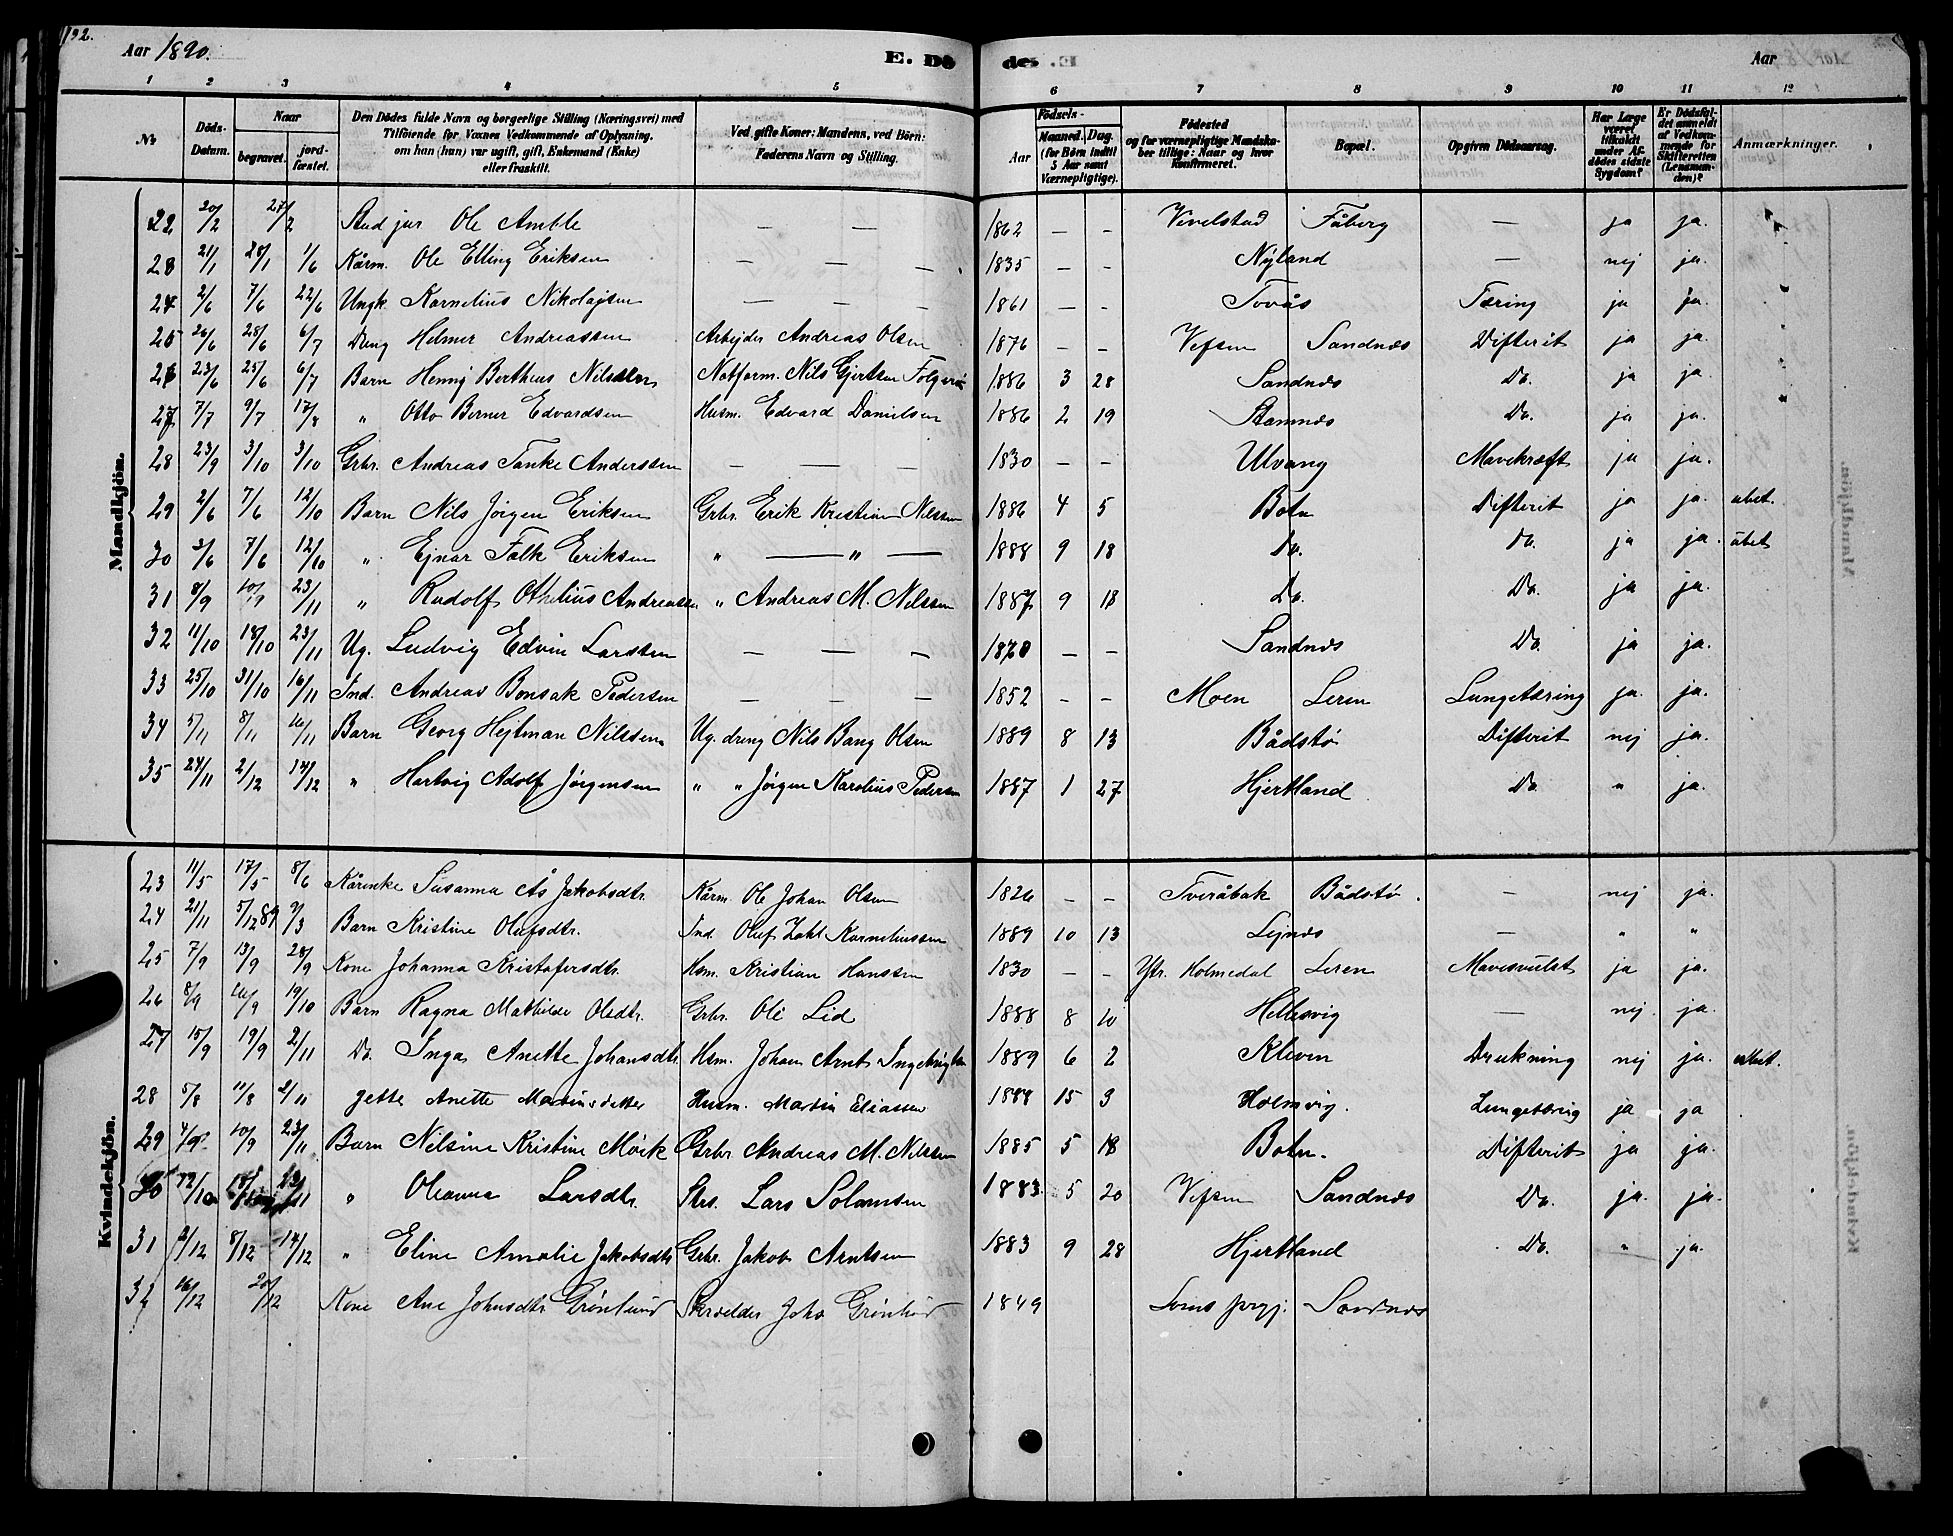 192.
Aar 1890. E. Dö de. Aar
1 2 3 4 5 6 7 8 9 10 11 12
No. Döds-Datum. Naar begravet. jordfæstet. Den Dödes fulde Navn og borgerlige Stilling (Næringsvei) med Tilföiende for Voxnes Vedkommende af Oplysning. om han (hun) var ugift, gift, Enkemand (Enke) eller fraskilt. Ved gifte Koner: Mandens, ved Börn: Faderens Navn og Stilling. Födsels- Aar Maaned. Dag. (for Börn indtil 5 Aar samt Værnepligtige). Födested og for værnepligtige Mandskaber tillige: Naar og hvor konfirmeret. Bopæl. Opgiven Dödsaarsag. Har Læge været tilkaldt under Afdödes sidste Sygdom? Er Dödsfaldet anmeldt af Vedkommende for Skifteretten (Lensmanden)? Anmærkninger.
Mandkjön.
22 20/2 27/2 Stud jur Ole Amble — — 1862 — — Vevelstad Fåberg — ja ja.
23 21/1 28/1 1/6 Kårm. Ole Elling Eriksen — — — 1835 — — Nyland — nej ja.
24 2/6 7/6 22/6 Ungk. Kornelius Nikolajsen — — — 1861 — — Tovås Tæring ja ja.
25 26/6 28/6 6/7 Dreng Helmer Andreassen Arbejder Andreas Olsen 1876 — — Vefsen Sandnæs Difterit ja ja.
26 23/6 25/6 6/7 Barn Hennig Bertheus Nilssen Notform. Nils Gjertsen 1886 3 28 Sandnæs Do. ja ja.
27 7/7 9/7 17/8 " Otto Berner Edvardsen Husm. Edvard Danielsen 1886 2 19 Stamnes Do. ja ja.
28 23/9 3/10 3/10 Grbr. Andreas Tanke Anderssen — — — 1830 — — Ulvang Mavekræft ja ja.
29 2/6 7/6 12/10 Barn Nils Jörgen Eriksen Grbr. Erik Kristian Nilssen 1886 4 5 Botn Difterit ja ja. ubet.
30 3/6 7/6 12/10 " Ejnar Falk Eriksen " — " — 1888 9 18 Do. Do. ja ja. ubet
31 8/9 10/9 23/11 " Rudolf Othelius Andreassen " Andreas M. Nilssen 1887 9 18 Do. Do. ja ja.
32 11/10 18/10 23/11 Ug. Ludvig Edvin Larssen — — — 1870 — — Sandnæs Do. ja ja.
33 25/10 31/10 16/11 Ind. Andreas Bonsak Pedersen — — — 1852 — — Moen Leren Lungetæring ja ja.
34 5/11 8/11 16/11 Barn Georg Hejtman Nilssen Ug. dreng Nils Bang Olsen 1889 8 13 Bådstø Difterit nej ja.
35 24/11 2/12 14/12 " Hartvig Adolf Jörgensen " " Jörgen Karolius Pedersen 1887 1 27 Hjertland Do. " ja.
Kvindekjön.
23 11/5 17/5 8/6 Kårenke Susanna Ås Jakobsdtr. Kårm. Ole Johan Olsen 1826 — — Tveråbak Bådstø. — nej ja.
24 21/11 5/12 89 9/3 Barn Kristine Olufsdtr. Ind. Oluf Zahl Korneliussen 1889 10 13 Lejnes — " "
25 7/9 13/9 28/9 Kone Johanna Kristofersdtr. Hsm. Kristian Hanssen 1830 — — Ytr. Holmedal Leren Mavesvulst ja ja.
26 8/9 16/9 19/10 Barn Ragna Mathilde Olsdtr. Grbr. Ole Lid 1888 8 10 Hellesvig — nej. ja.
27 15/9 19/9 2/11 Do. Inga Anette Johansdtr. Hsm. Johan Arnt Ingebrigtsen 1889 6 2 Kleven Drukning nej ja. ubet.
28 5/8 11/8 2/11 Jette Anette Martinsdatter Husm. Martin Eliassen 1888 15 3 Holmvig. Lungetæring ja ja
29 4/9 10/9 23/11 Barn Nilsine Kristine Møik Grbr Andreas M. Nilssen 1885 5 18 Botn. Difterit ja ja.
30 12/10 18/10 23/11 " Oleanna Larsdtr. Strs. Lars Solamsen 1883 5 20 Vefsen Sandnæs Do. ja. ja.
31 2/12 8/12 14/12 " Eline Amalie Jakobsdtr Grbr. Jakob Arntsen 1883 9 28 Hjertland Do. " ja.
32 16/12 20/12 Kone Ane Johnsdtr Grønlund Skrædder Joho Grønlund 1849 Soms prgj. Sandnæs